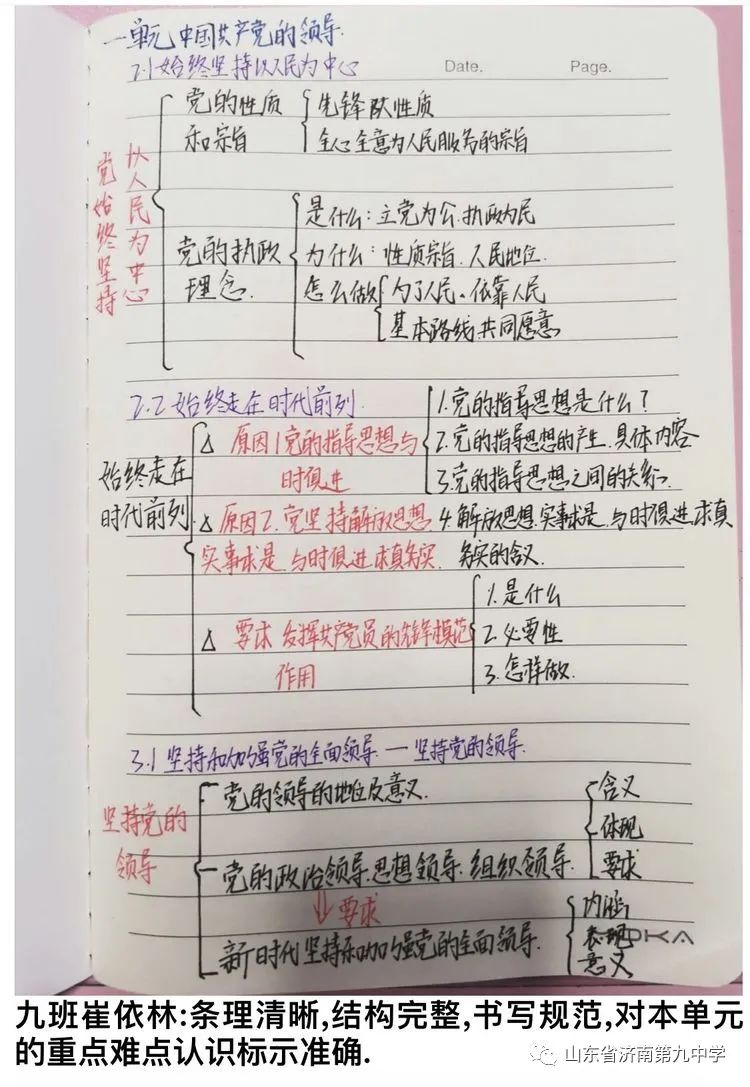 一单元 中国共产党的领导.
2.1始终坚持以人民为中心
Date. Page.
党始终坚持
以人民为中心
党的性质
和宗旨
先锋队性质
全心全意为人民服务的宗旨
党的执政
理念.
是什么:立党为公.执政为民
为什么:性质宗旨.人民地位.
怎么做
为了人民、依靠人民
基本路线.共同愿意
2.2始终走在时代前列.
始终走在
时代前列.
△ 原因1党的指导思想与
时俱进
1.党的指导思想是什么?
2.党的指导思想的产生.具体内容
3.党的指导思想之间的关系.
△ 原因2.党坚持解放思想
实事求是.与时俱进求真务实.
4.解放思想.实事求是.与时俱进.求真
务实的含义.
△ 要求 发挥共产党员的先锋模范
作用
1.是什么
2.必要性
3.怎样做.
3.1 坚持和加强党的全面领导.一坚持党的领导.
坚持党的
领导
党的领导的地位及意义.
党的政治领导.思想领导.组织领导.
含义
体现
要求
⇓要求
新时代坚持和加强党的全面领导.
内涵
表现
意义
OKA
九班崔依林:条理清晰,结构完整,书写规范,对本单元
的重点难点认识标示准确.
山东省济南第九中学